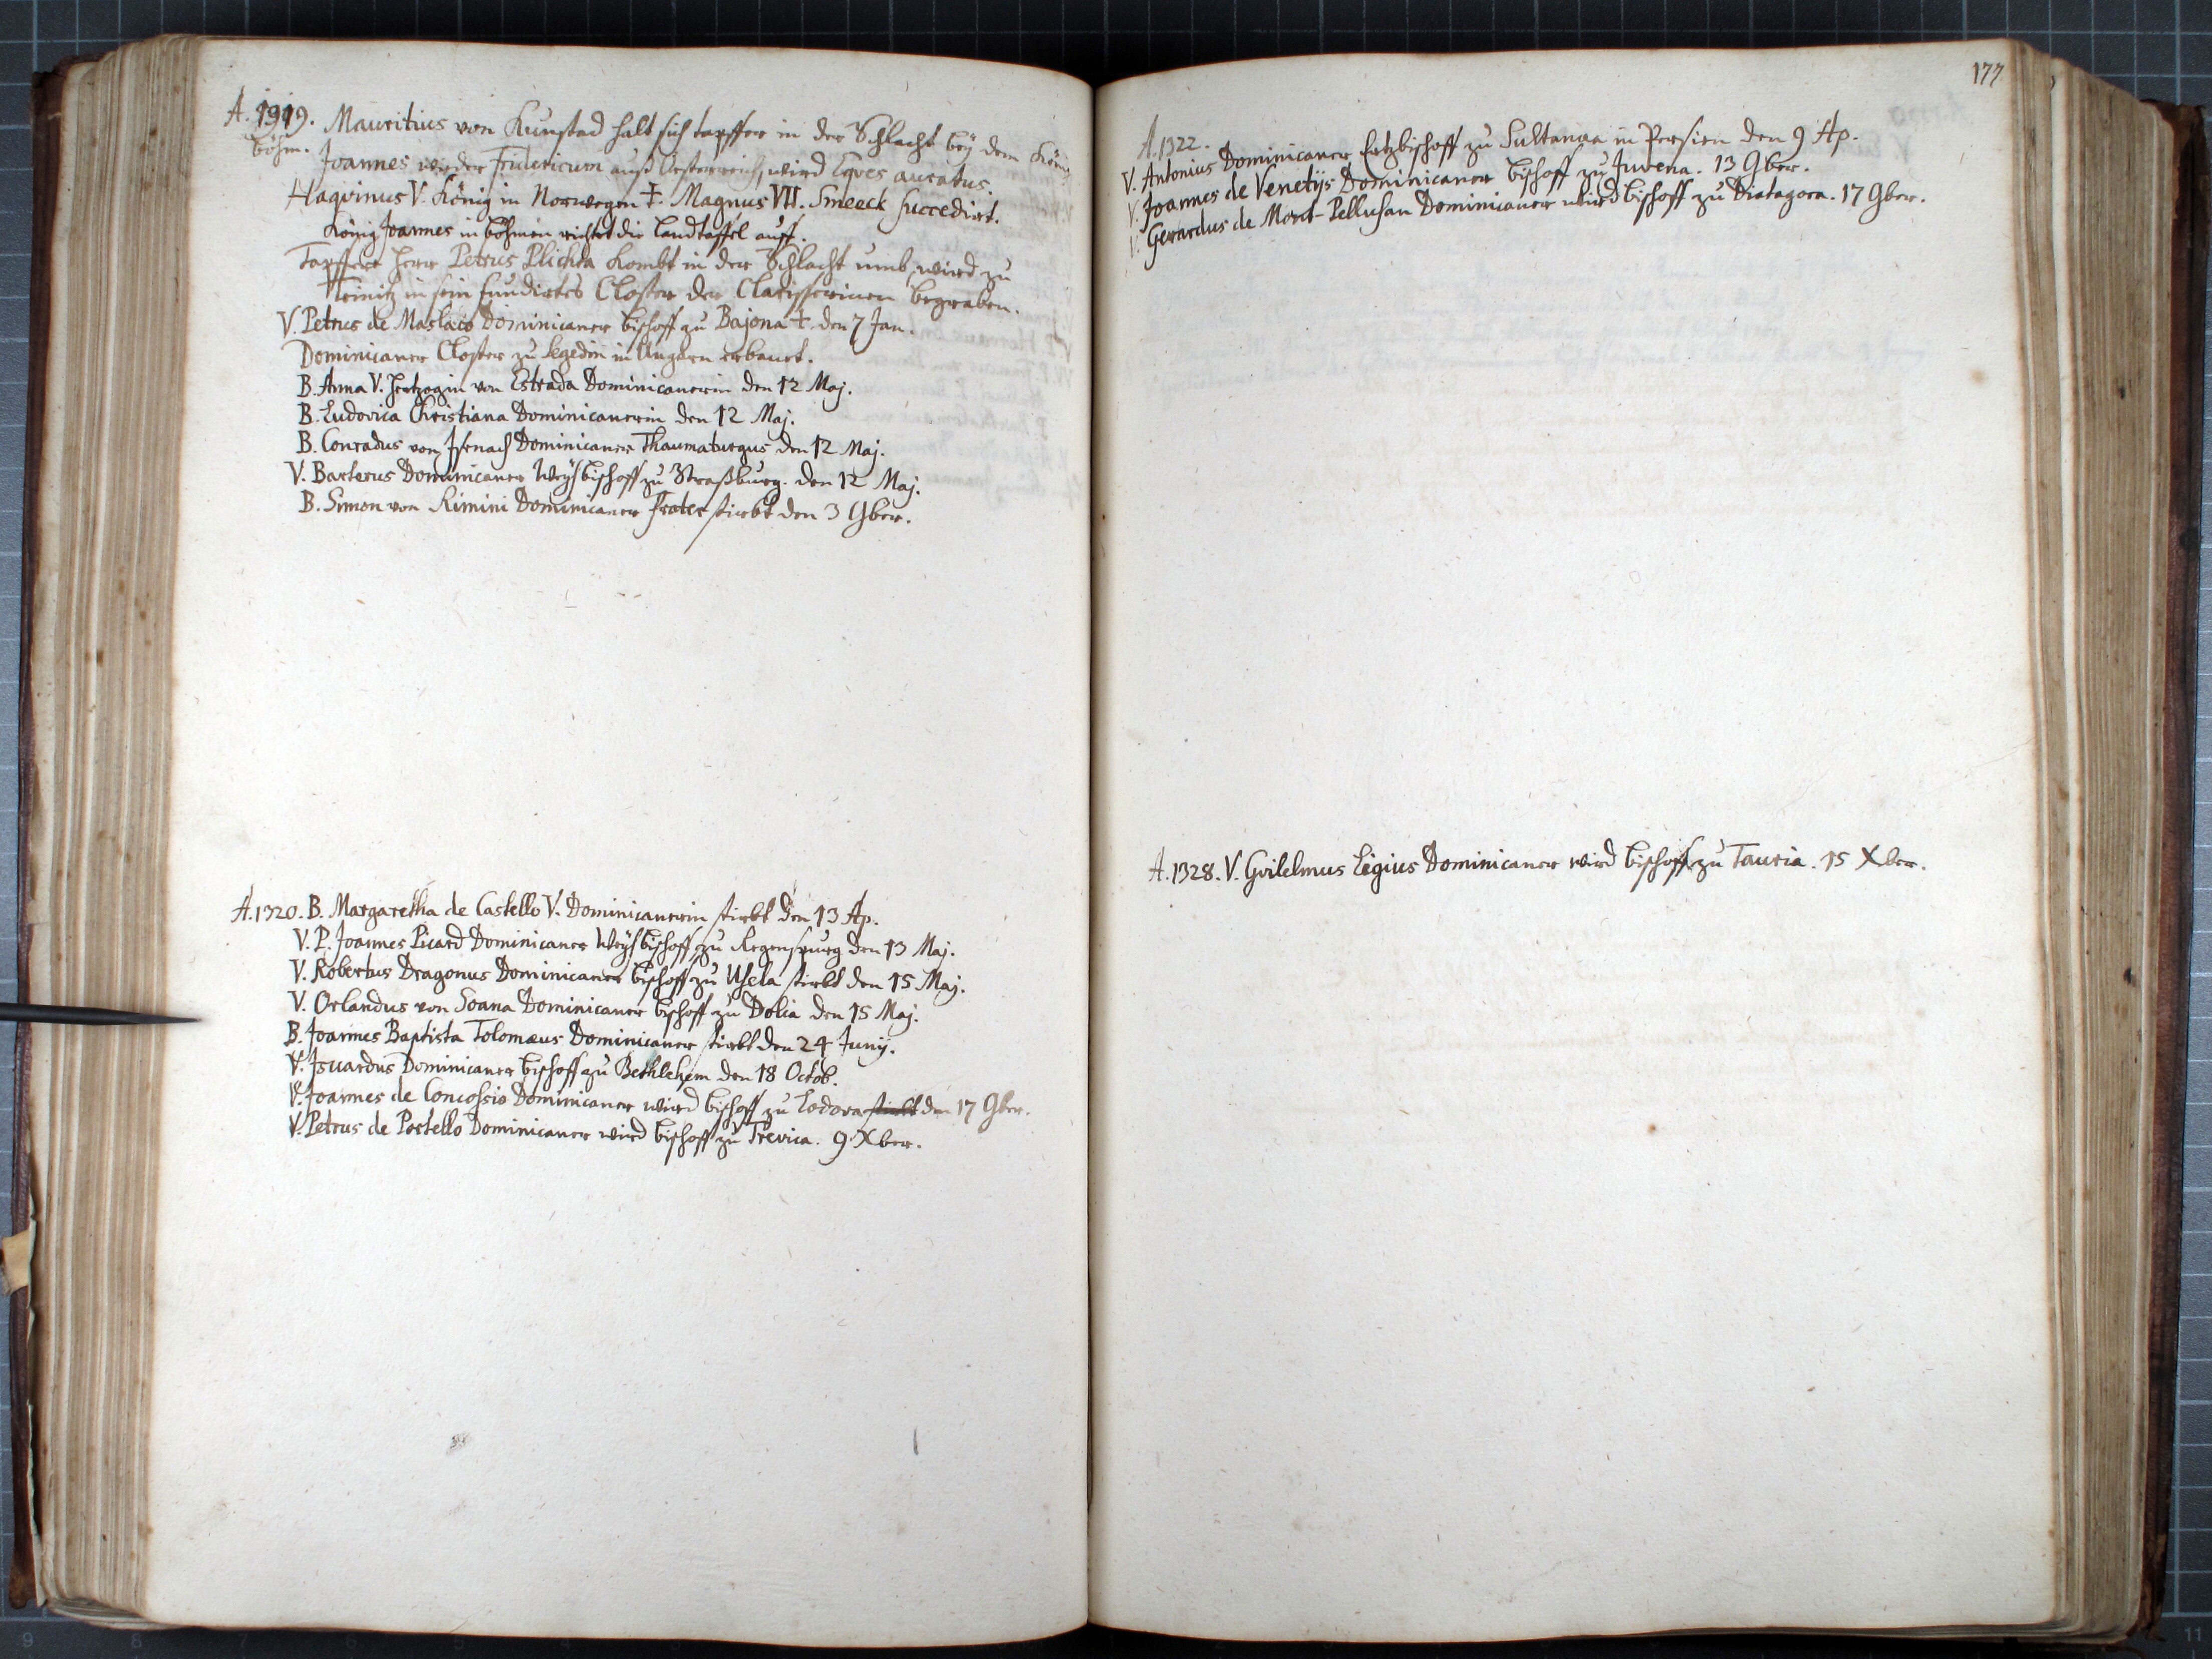 A. 1319. Mauritius von Kunstad halt sich tapffer in der Schlacht bey dem König
böhm. Joannes wieder Fridericum auß Oesterreich, wird Eqves auratus.
Haqvinus V. König in Norwegen †. Magnus VII. Smeeck succedirt.
König Joannes in böhmen richtet die Landtaffel auff.
Tapffere Herr Petrus Plichta kombt in der Schlacht umb, wird zu
Teinitz in sein fundirtes Closter der Clarisserinen begraben.
V. Petrus de Maslaco Dominicaner bischoff zu Bajona † den 7 Jan.
Dominicaner Closter zu Segedin in Ungarn erbauet.
B. Anna V. Hertzogin von Estrada Dominicanerin den 12 Maj.
B. Ludovica Christiana Dominicanerin den 12 Maj.
B. Conradus von Isenach Dominicaner Thaumaturgus den 12 Maj.
V. Barterus Dominicaner Weyhbischoff zu Straßburg. den 12 Maj.
B. Simon von Rimini Dominicaner Frater stirbt den 3 9ber.
A. 1320. B. Margaretha de Castello V. Dominicanerin stirbt den 13 Ap.
V. P. Joannes Picard Dominicaner Weyhbischoff zu Regenspurg den 13 Maj.
V. Robertus Dragonus Dominicaner bischoff zu Usela stirbt den 15 Maj.
V. Orlandus von Soana Dominicaner bischoff zu Dolia den 15 Maj.
B. Joannes Baptista Tolomæus Dominicaner stirbt den 24 Junij.
V. Isuardus Dominicaner bischoff zu Bethlehem den 18 Octob.
V. Joannes de Concossio Dominicaner wird bischoff zu Lodova stirbt den 17 9ber.
V. Petrus de Postello Dominicaner wird bischoff zu Trevica. 9 Xber.
177
A. 1322.
V. Antonius Dominicaner Ertzbischoff zu Sultanaa in Persien den 9 Ap.
V. Joannes de Venetijs Dominicaner bischoff zu Juvena. 13 9ber.
V. Gerardus de Mont-Pellusan Dominicaner wird bischoff zu Diatagora. 17 9ber.
A. 1328. V. Gvilelmus Eigius Dominicaner wird bischoff zu Tauria. 15 Xber.